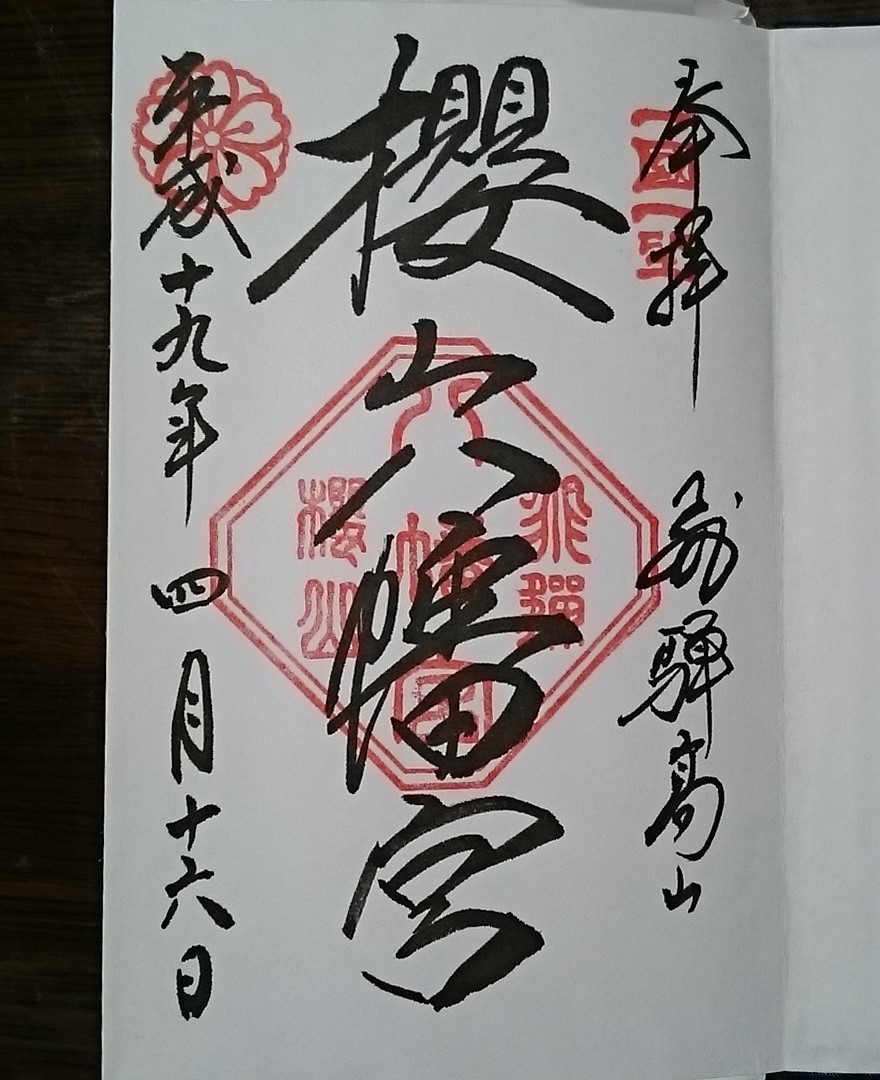 奉拝
飛騨高山
一國一社
櫻山八幡宮
飛騨
八幡宮
櫻山
平成十九年四月十六日